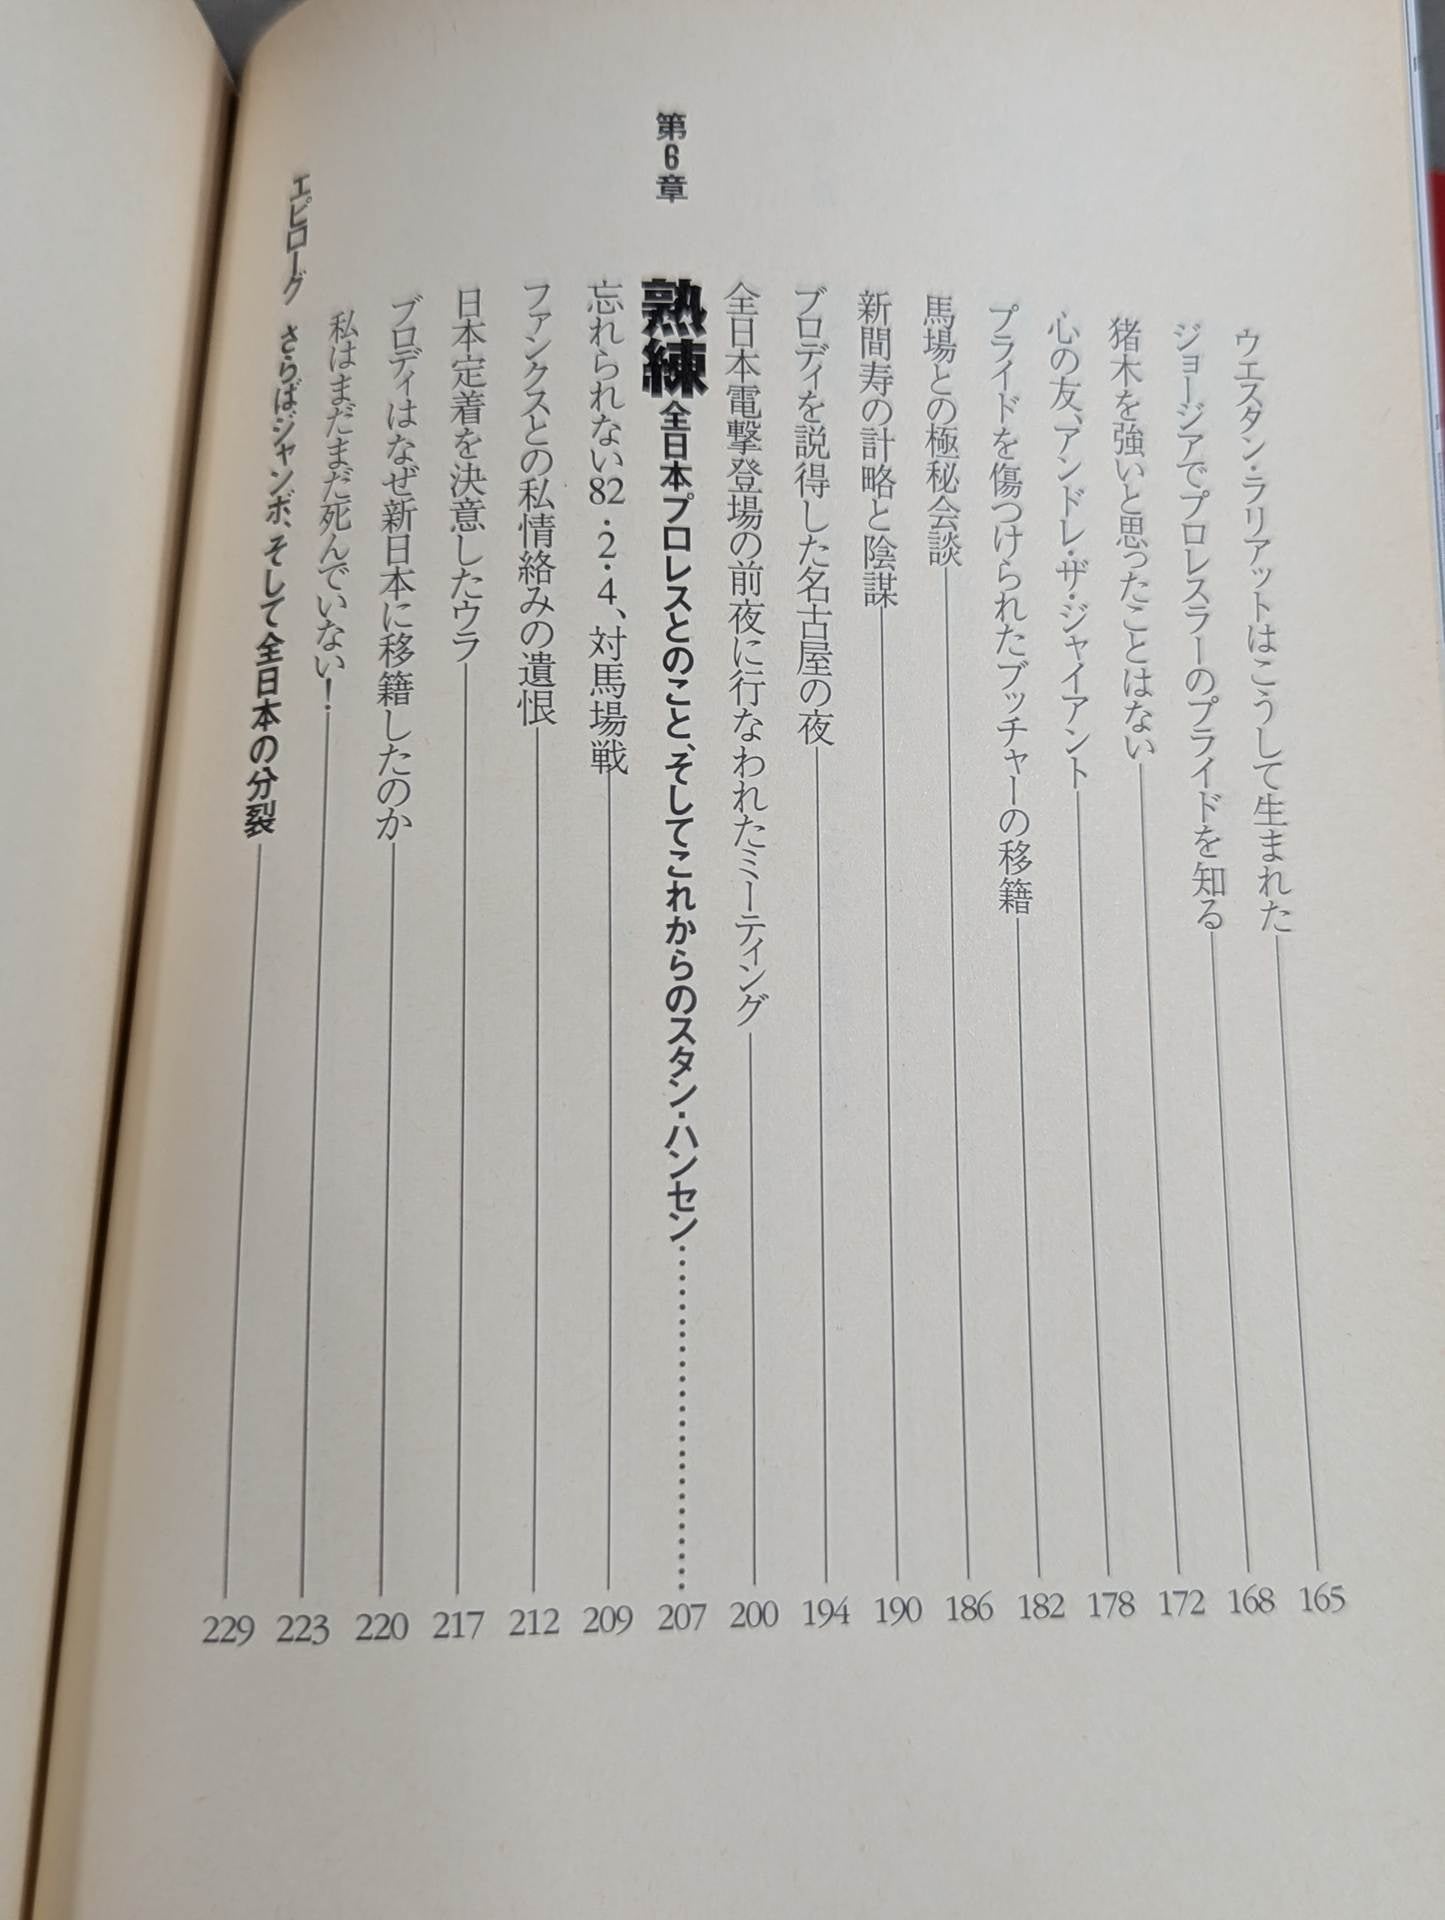 ウエスタン・ラリアットはこうして生まれた 165
ジョージアでプロレスラーのプライドを知る 168
猪木を強いと思ったことはない 172
心の友、アンドレ・ザ・ジャイアント 178
プライドを傷つけられたブッチャーの移籍 182
馬場との極秘会談 186
新間寿の計略と陰謀 190
ブロディを説得した名古屋の夜 194
全日本電撃登場の前夜に行なわれたミーティング 200
第6章 熟練 全日本プロレスとのこと、そしてこれからのスタン・ハンセン 207
忘れられない82・2・4、対馬場戦 209
ファンクスとの私情絡みの遺恨 212
日本定着を決意したウラ 217
ブロディはなぜ新日本に移籍したのか 220
私はまだまだ死んでいない! 223
エピローグ さらばジャンボ、そして全日本の分裂 229